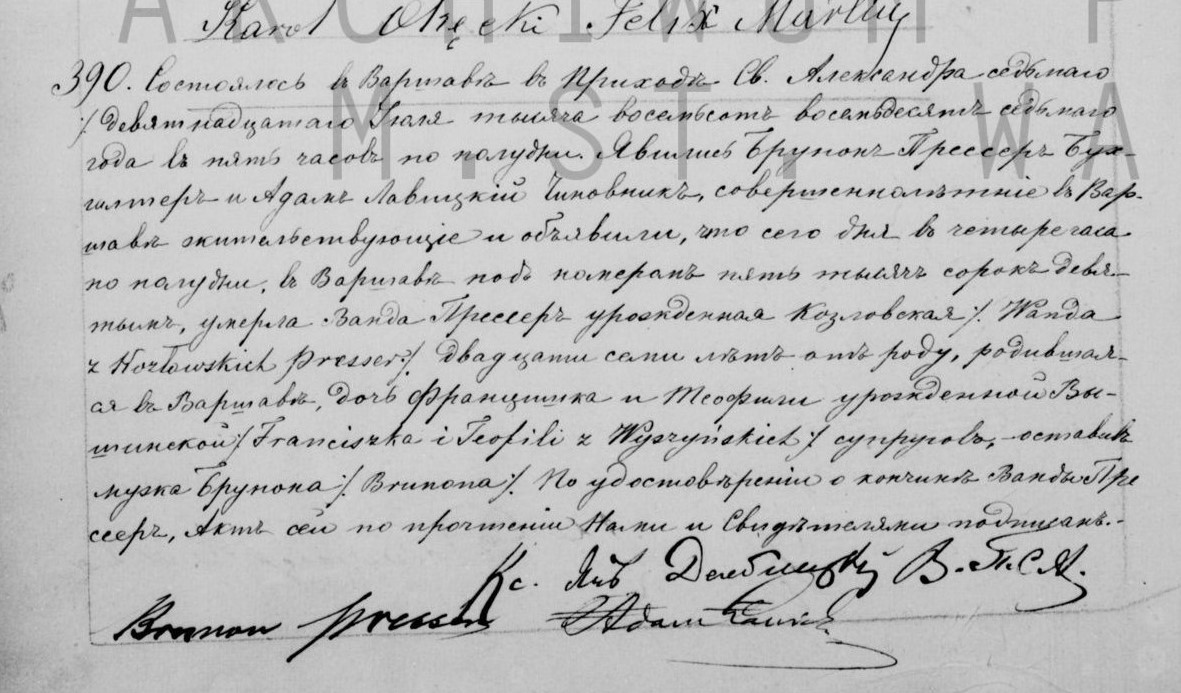 ARCHIWUM P
M.ST. WA
Karol Okęcki Felix
390. Состоялось въ Варшавѣ въ Приходѣ Св. Александра седьмаго
/: девятнадцатаго Іюля тысяча восемьсотъ восемьдесятъ седьмаго
года въ пять часовъ по полудни. Явились Брунонъ Прессеръ Бух-
галтеръ и Адамъ Лавицкій Чиновникъ, совершеннолѣтніе въ Вар-
шавѣ жительствующіе и объявили, что сего дня въ четыре часа
по полудни, въ Варшавѣ подъ номеромъ пять тысячъ сорокъ девя-
тымъ, умерла Ванда Прессеръ урожденная Козловская /: Wanda
z Kozłowskich Presser :/ двадцати семи лѣтъ отъ роду, родившая-
ся въ Варшавѣ, дочь Францишка и Теофили урожденной Вы-
шинской /: Franciszka i Teofili z Wyszyńskich :/ супруговъ, оставивъ
мужа Брунона /: Brunona :/. По удостовѣреніи о кончинѣ Ванды Пре
ссеръ, Актъ сей по прочтеніи Нами и Свидѣтелями подписанъ.-
Кс. В.П.С.А.
Brunon Presser Adam